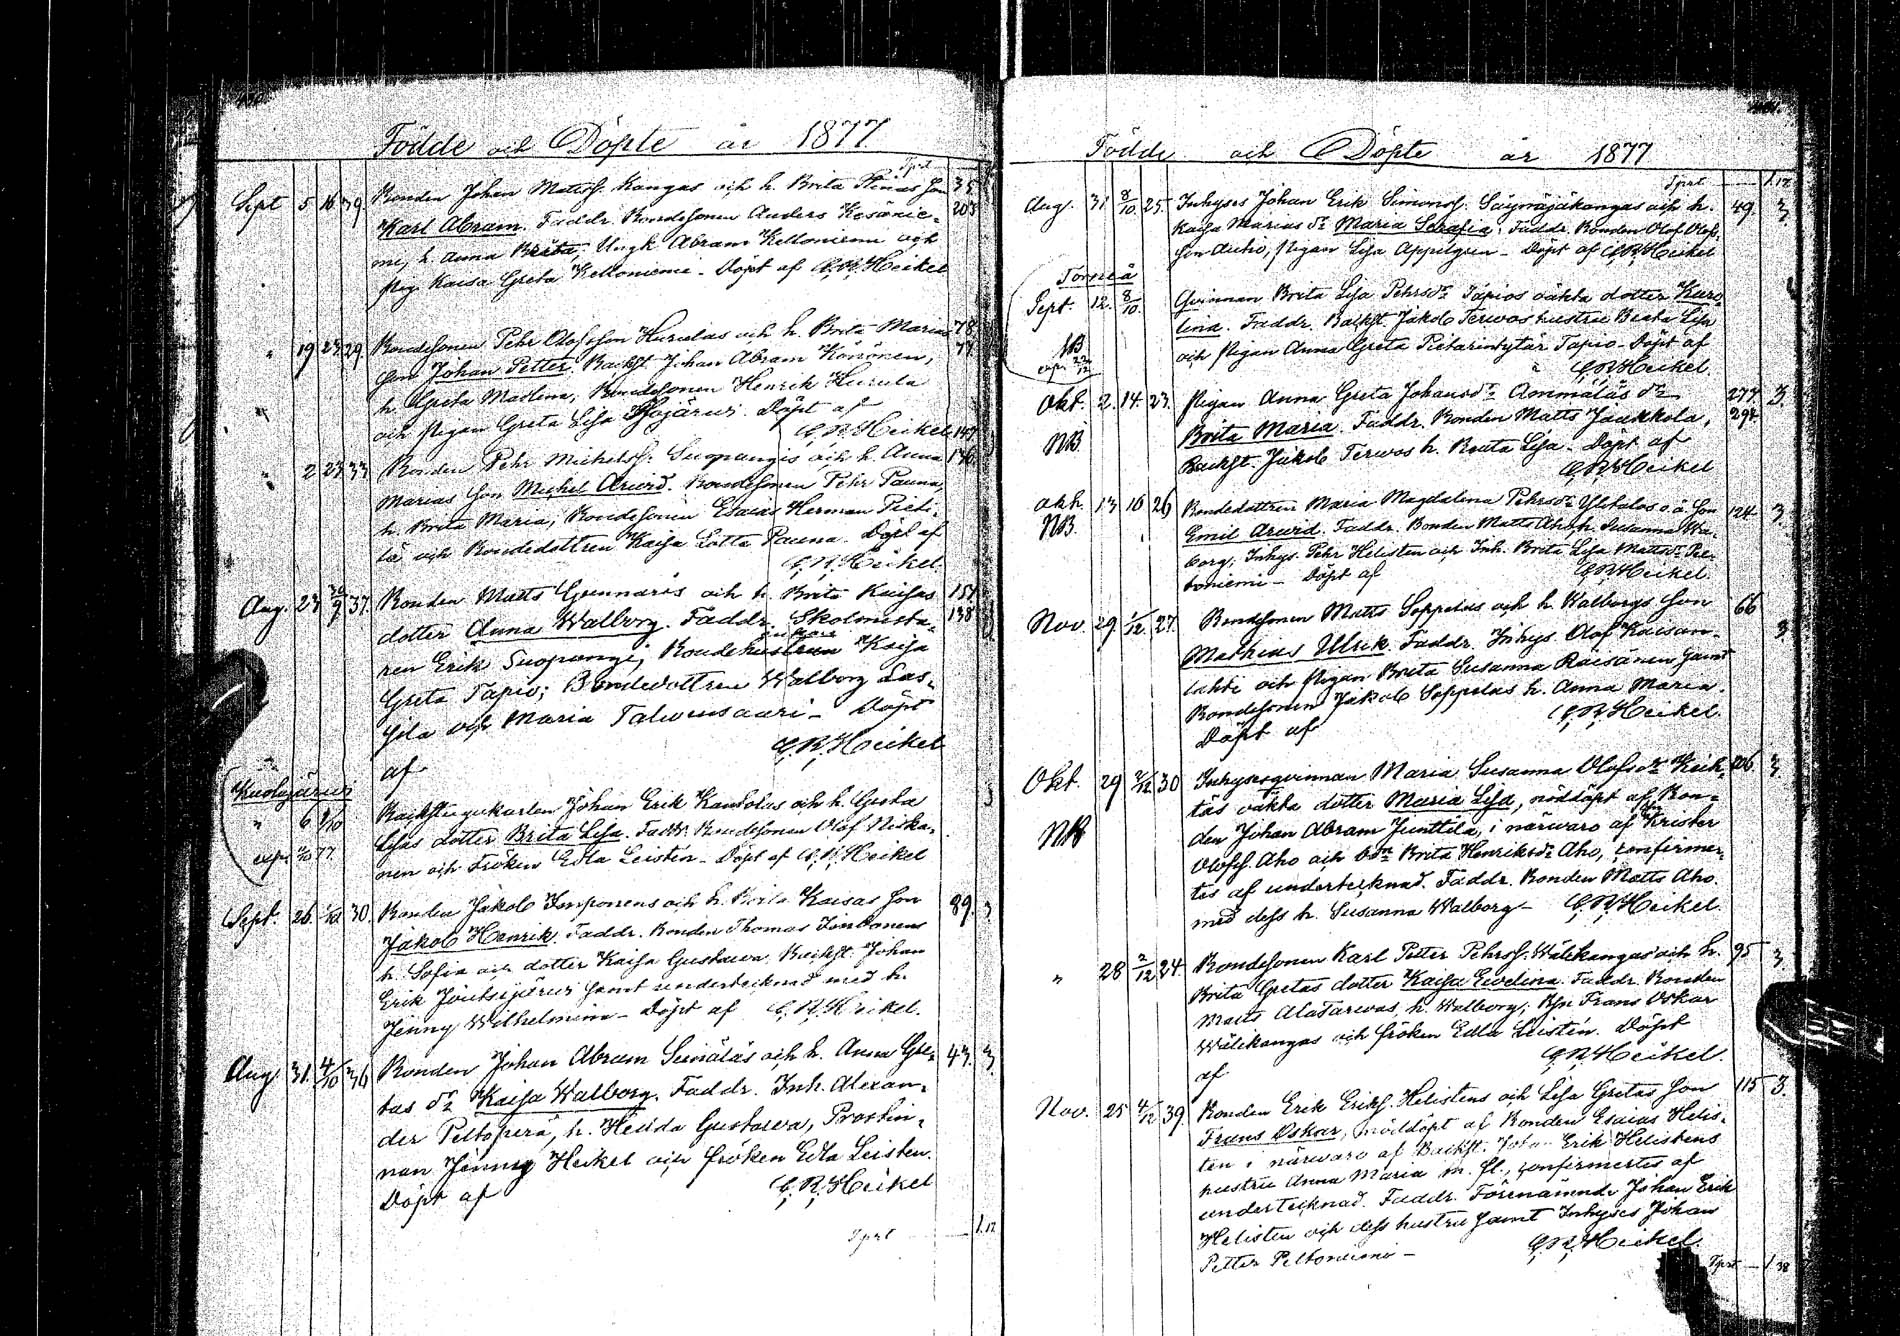 Födde och Döpte år 1877
Tprt
Sept 5 16 39. Bonden Johan Matsss. Kangas och h. Brita Stinas son 35
Karl Abram. Faddr. Bondesonen Anders Kesänie- 203
mi, h. Anna Brita, Yngl. Abram Keltoniemi och
pig. Kaisa Greta Keltoniemi - Döpt af C.R. Heikel
" 19 23 29. Bondesonen Pehr Olofsson Hurulas och h. Brita Marias 78
son Johan Petter. Backst. Johan Abram Könönen, 77
h. Greta Madlena, Bondesonen Henrik Kurula
och pigan Greta Lisa Döpt af
C.R. Heikel 147
" 2 23 33 Bonden Pehr Michelss. Suopangis och h. Anna 136
Marias son Michel Arwid. Bondesonen Pehr Pauna,
h. Brita Maria, Bondesonen Esaias Herman Pieti-
lä och Bondedottren Kaisa Lotta Pauna. Döpt af
C.R. Heikel.
Aug. 23 30/9 37. Bonden Matts Gunnaris och h. Brita Kaisas 151
dotter Anna Walborg. Faddr. Skolmästa- 138
ren Erik Suopangi, Bondehustrun Kaisa
Greta Tapio; Bondedottren Walborg Las-
sila och Maria Talwensaari - Döpt
af C.R. Heikel
Kuolajärvi
" 6 9/10 Backstugukarlen Johan Erik Kantolas och h. Greta 3
Lisas dotter Brita Lisa. Faddr. Bondesonen Olof Niska-
nen och Fröken Edla Leistén - Döpt af C.R. Heikel
Sept. 26. 1/10 30. Bonden Jakob Imponens och h. Brita Kaisas son 89. 3
Jakob Henrik. Faddr. Bonden Thomas Imponens
h. Sofia och dotter Kaisa Gustawa, Backst. Johan
Erik Joutsijärwi samt undertecknad med h.
Jenny Wilhelmina - Döpt af C.R. Heikel.
Aug. 31. 4/10 36 Bonden Johan Abram Leinäläs och h. Anna Gre- 43. 3.
tas dr Kaisa Walborg. Faddr. Inh. Alexan-
der Peltoperä, h. Hedda Gustawa, Prostin-
nan Jenny Heikel och fröken Edla Leisten.
Döpt af C.R. Heikel
Tprt 1. 12
Födde och Döpte år 1877
Tprt 1. 12
Aug. 31. 8/10 25. Inhyses Johan Erik Simonss. Säynäjäkangas och h. 49. 3.
Kaisa Marias dr Maria Serafia. Faddr. Bonden Olof Olofs-
son Autio, pigan Lisa Appelgren - Döpt af C.R. Heikel
Torneå
Sept. 12. 8/10. Qvinnan Brita Lisa Pehrsdr Tapios oäkta dotter Karo-
lina. Faddr. Backst. Jakob Terwos hustru Beata Lisa
NB och pigan Anna Greta Pietarintytär Tapio - Döpt af
C.R. Heikel.
Okt. 2. 14. 23. Pigan Anna Greta Johansdr Ammäläs dr 277. 3.
Brita Maria. Faddr. Bonden Matts Jaakkola, 294.
NB. Backst. Jakob Terwos h. Beata Lisa. Döpt af
C.R. Heikel
Okt. 13 16 26 Bondedottren Maria Magdalena Pehrsdr Ylitalos o.ä. son 124. 3.
NB. Emil Arwid. Faddr. Bonden Matts Aho, h. Susanna Wal-
borg, Inhys. Pehr Helisten och Inh. Brita Lisa Mattsdr Pel-
toniemi - Döpt af C.R. Heikel.
Nov. 29. 1/12. 27. Bondesonen Matts Soppelas och h. Walborgs son 66
Mathias Ulrik. Faddr. Inhys. Olof Kaisan- 3
lahti och pigan Brita Susanna Räisänen, samt
Bondesonen Jakob Soppelas h. Anna Maria.
Döpt af C.R. Heikel.
Okt. 29 2/12 30 Inhysesqvinnan Maria Susanna Olofsdr Keik- 206 3.
täs oäkta dotter Maria Lisa, nöddöpt af Bon-
NB den Johan Abram Junttila, i närwaro af Krister
Olofss. Aho och Brita Henriksdr Aho, confirmer-
tes af undertecknad. Faddr. Bonden Matts Aho
med dess h. Susanna Walborg - C.R. Heikel
" 28 2/12 24. Bondesonen Karl Petter Pehrss. Wälikangas och h. 95 3.
Brita Gretas dotter Kaisa Evelina. Faddr. Bonden
Matts Alatarwas, h. Walborg; Bsn Frans Oskar
Wälikangas och fröken Edla Leistén. Döpt
af C.R. Heikel.
Nov. 25 4/12 39. Bonden Erik Erikss. Helistens och Lisa Gretas son 115 3.
Frans Oskar, nöddöpt af Bonden Esaias Helis-
ten i närwaro af Backst. Johan Erik Helistens
hustru Anna Maria m. fl., confirmertes af
undertecknad. Faddr. Förenämnde Johan Erik
Helisten och dess hustru samt Inhyses Johan
Petter Peltoniemi - C.R. Heikel.
Tprt 1 38